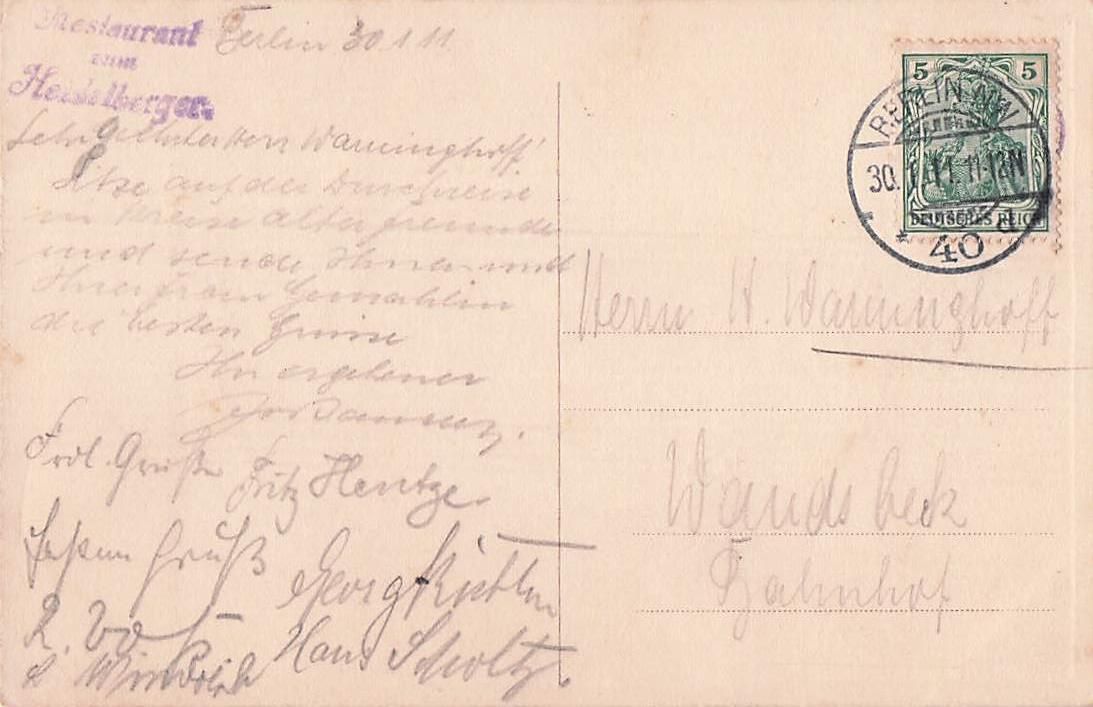 Restaurant
zum
Heidelberger
Berlin 30.1.11.
Sehr Geehrter Herr Warninghoff!
Sitze auf der Durchreise
im Kreise alter Freunde
und sende Ihnen und
Ihrer Frau Gemahlin
die besten Grüsse
Ihr ergebener
Frdl. Grüße Fritz Hentze
Gruß
Georg
Hans Scholtz.
5 5
BERLIN NW
30.1.11. 11-12N
* 40 d
DEUTSCHES REICH
Herrn H. Warninghoff
Wandsbeck
Bahnhof